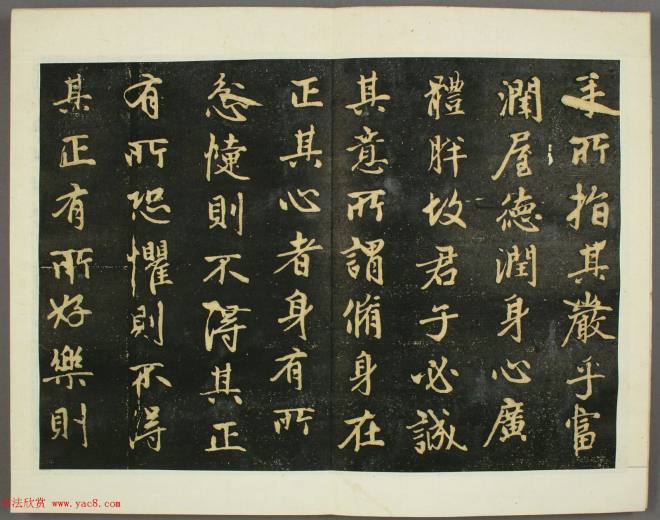 手所指其嚴乎富
潤屋德潤身心廣
體胖故君子必誠
其意所謂脩身在
正其心者身有所
忿懥則不得其正
有所恐懼則不得
其正有所好樂則
書法欣赏 www.yac8.com